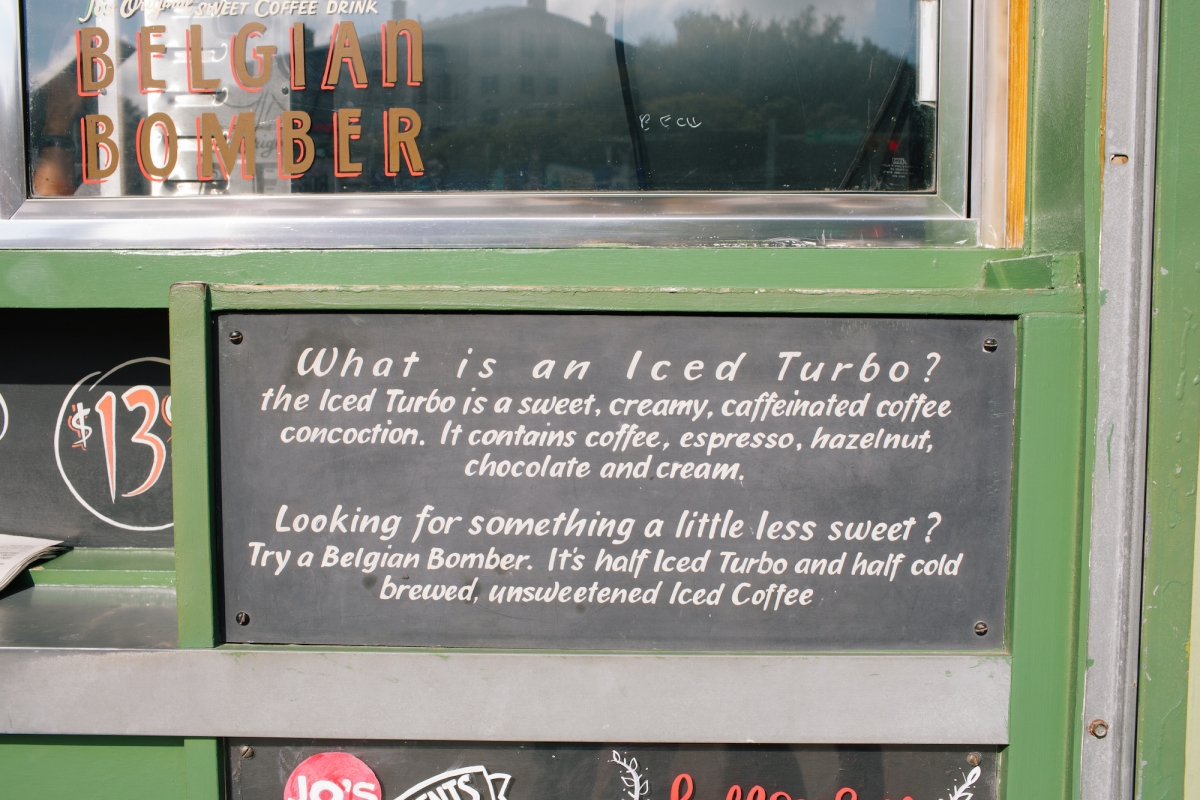 SWEET COFFEE DRINK
BELGIAN
BOMBER
$13
What is an Iced Turbo?
the Iced Turbo is a sweet, creamy, caffeinated coffee
concoction. It contains coffee, espresso, hazelnut,
chocolate and cream.
Looking for something a little less sweet?
Try a Belgian Bomber. It's half Iced Turbo and half cold
brewed, unsweetened Iced Coffee
JO'S